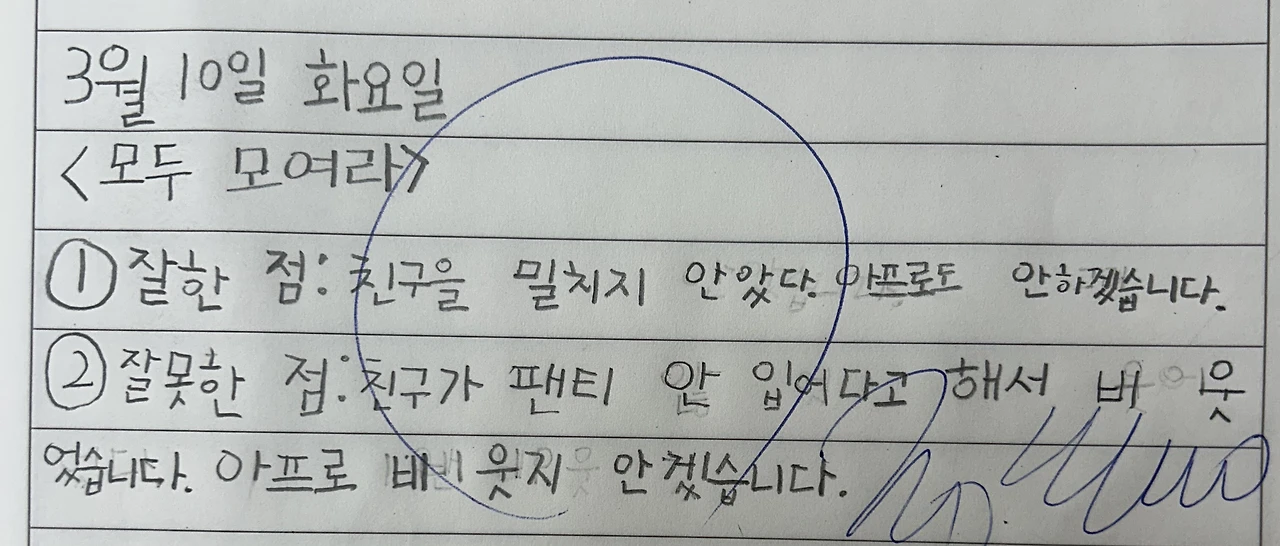 3월 10일 화요일
<모두 모여라>
① 잘한 점: 친구을 밀치지 안았다. 아프로도 안하겠습니다.
② 잘못한 점: 친구가 팬티 안 입어다고 해서 비웃
었습니다. 아프로 비웃지 안겠습니다.